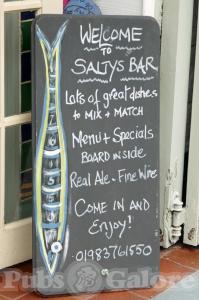 WELCOME
TO
SALTYS BAR
Lots of great dishes
to MIX + MATCH
Menu + Specials
BOARD INSIDE
Real Ale - Fine Wine
COME IN AND
Enjoy!
01983761550
Pubs Galore